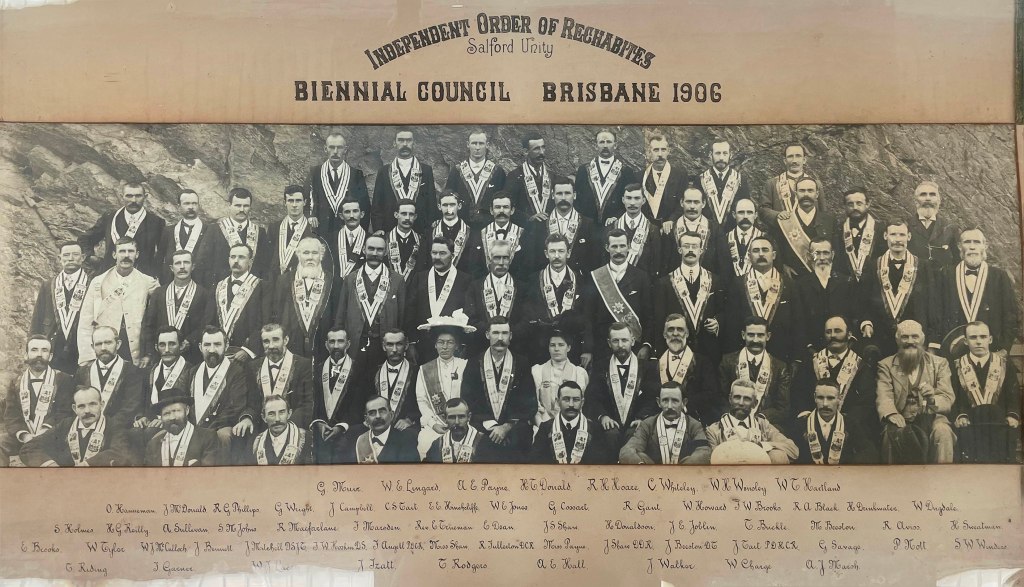 Independent Order of Rechabites
Salford Unity
Biennial Council Brisbane 1906
G Muir. W. E. Lingard. A. E. Payne. H. T. Donald. R. H. Hoare. C. Whiteley. W. H. Wensley W. T. Hartland
O. Hanneman. J. McDonald R. G. Phillips. G. Wright. J. Campbell C. S. Tait E. E. Hinchcliffe W. E. Jones G. Cossart R. Gant W. Howard F. W. Brooks R. A. Black H. Drinkwater W. Drysdale.
S. Holmes H. G. Reilly A. Sullivan S. M. Johns R. Macfarlane J. Marsden Rev. E. Trueman E. Dean J. S. Shaw H. Donaldson, J. E. Joblin. T. Buckle M. Breston R. Avros. H. Sweatman.
E. Brooks W. Tyler W. J. McCulloch J. Bennett J. Mitchell F. W. J. Angell P.D.C.R. Miss Shaw R. Fullerton D.C.R Miss Payne J. Shaw D.D.R. J. Breston D.T J. Tart P.D.H.C.R G. Savage P. Nott S. W. Windess
T. Riding J. Garner W. J. J. Izatt T. Rodgers A. E. Hall J. Walker W. Charge A. J. Marsh